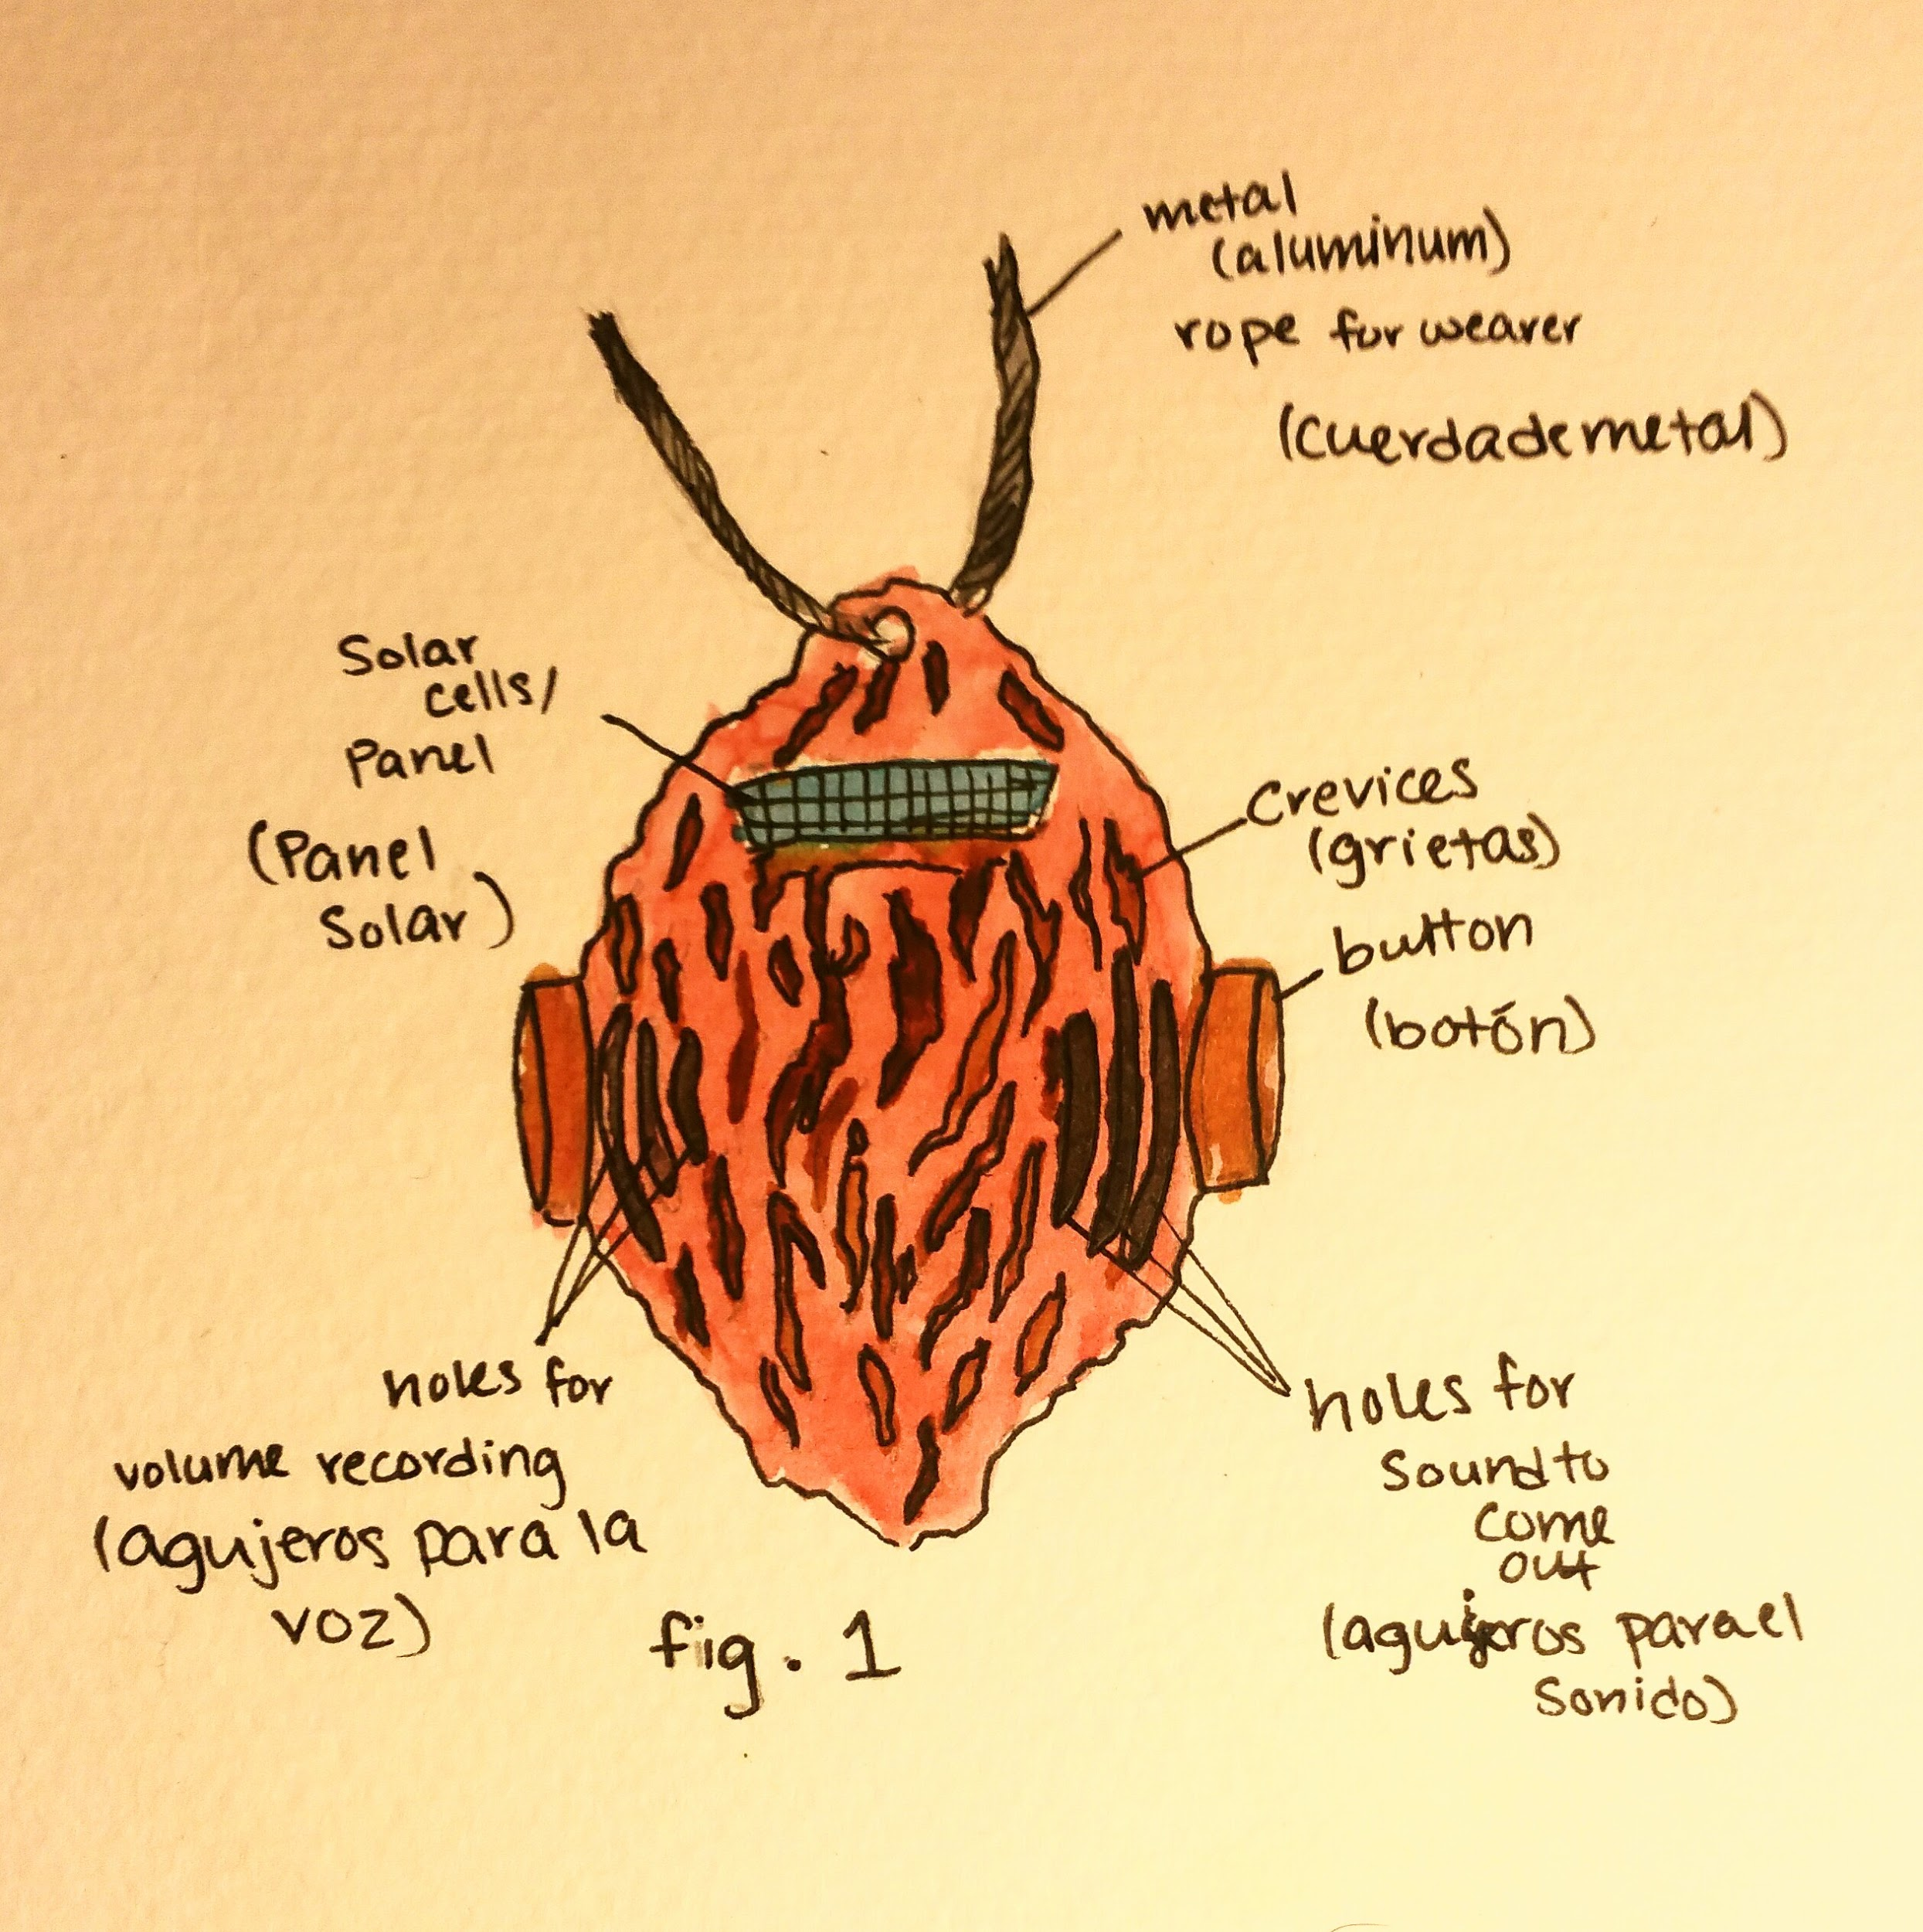 metal
(aluminum)
rope for wearer
(cuerda de metal)
Solar
cells/
Panel
(Panel
Solar)
Crevices
(grietas)
button
(botón)
holes for
volume recording
(agujeros para la
voz)
holes for
Sound to
come
out
(agujeros para el
Sonido)
fig. 1